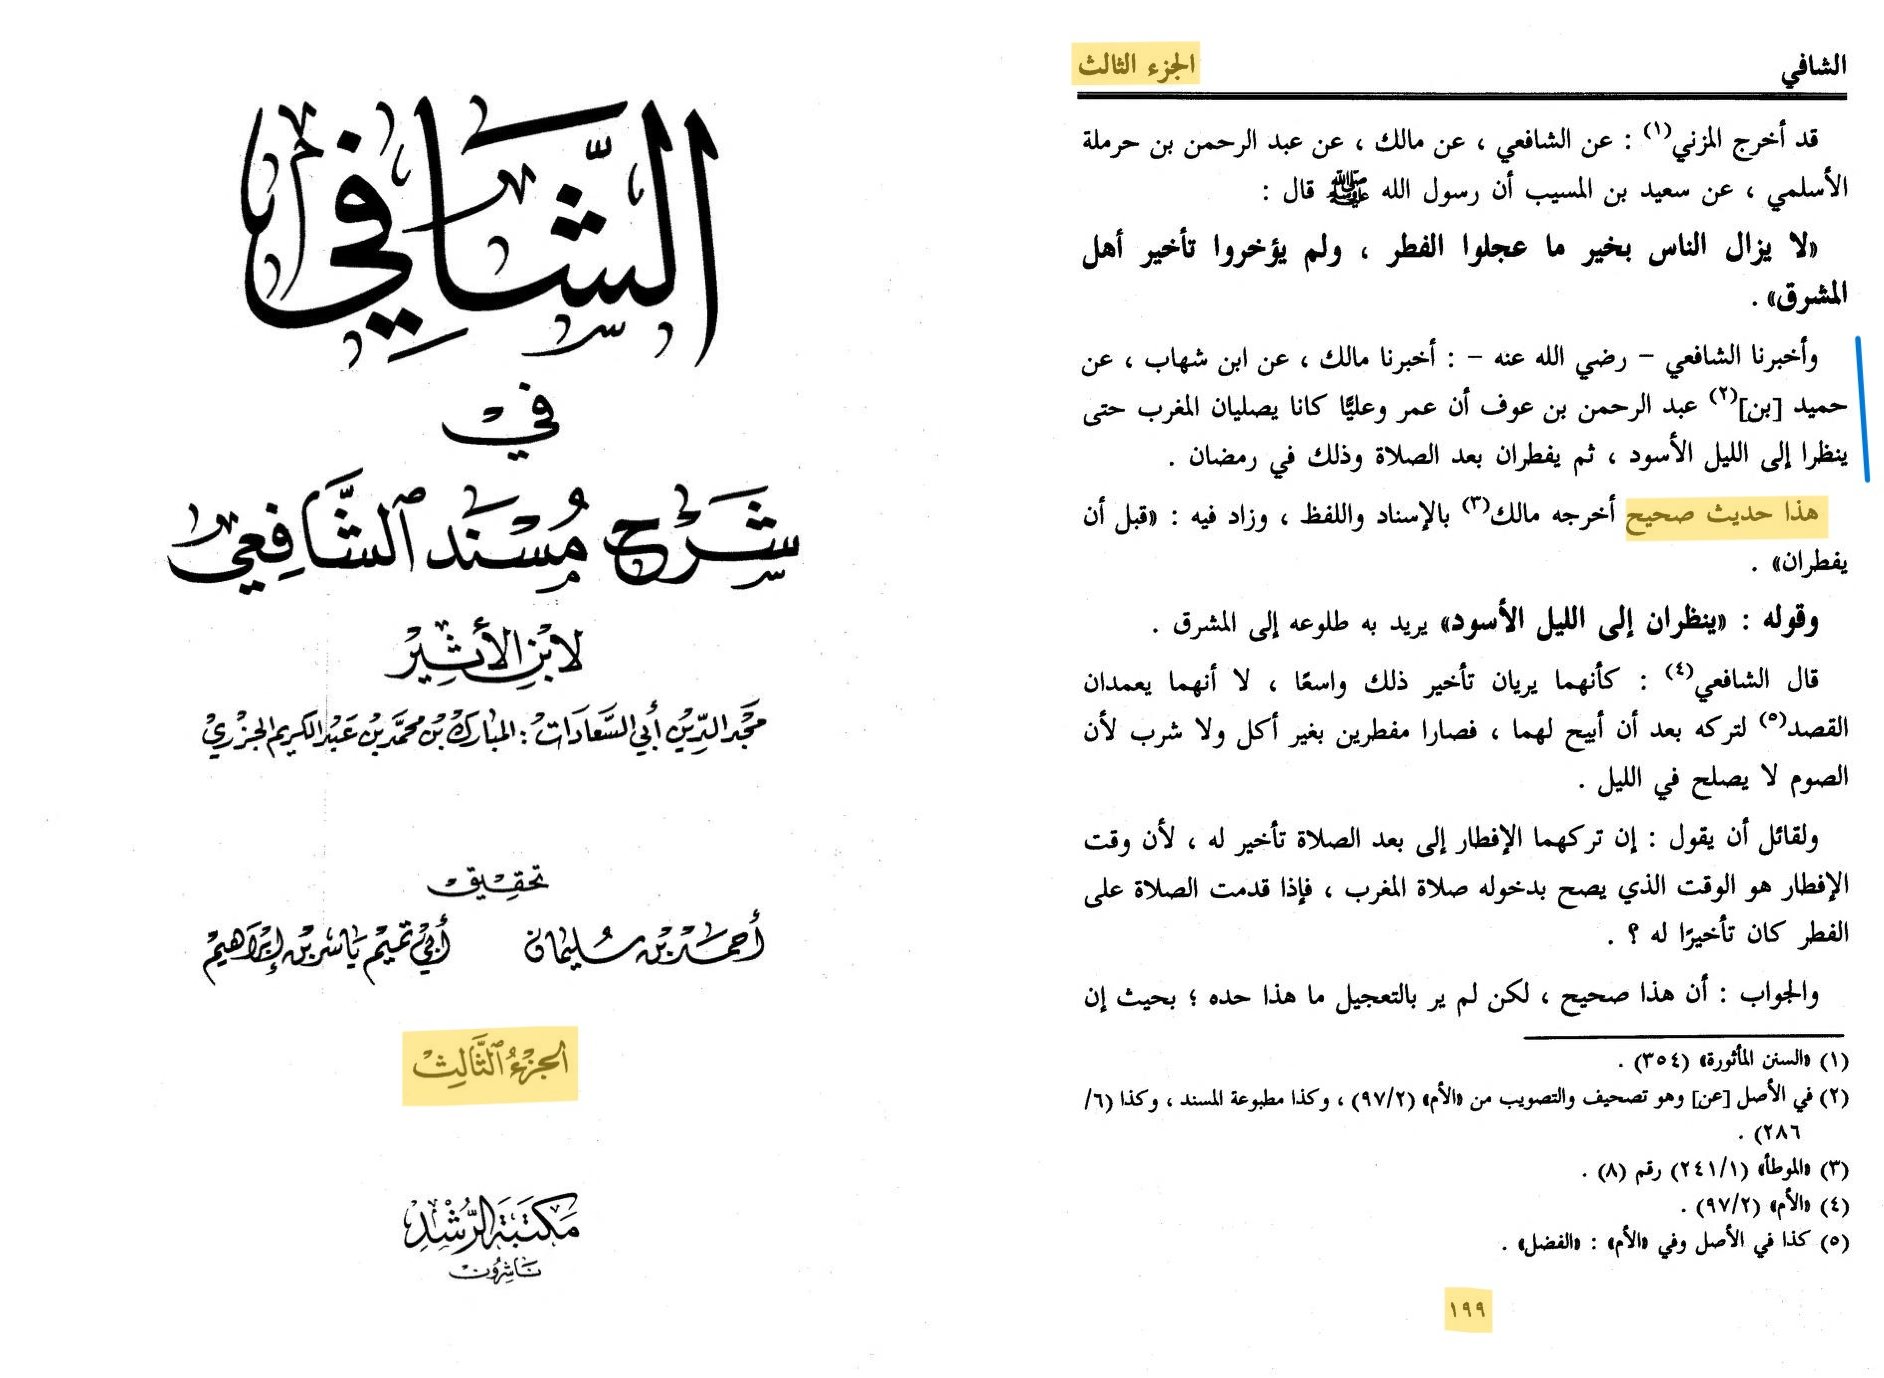 الشَّافِي
فِي
شَرْح مُسْنَد الشَّافِعِي
لابْن الأَثِير
مَجْد الدِّيْن أَبِي السَّعَادَات : المُبَارَك بْن مُحَمَّد بْن عَبْد الكريم الجزري
تحقيق
أحمد بن سليمان أبي تميم ياسر بن إبراهيم
الجزءُ الثَّالِث
مَكتَبَة الرُّشْد
ناشرون
الشافي الجزء الثالث
قد أخرج المزني(١) : عن الشافعي ، عن مالك ، عن عبد الرحمن بن حرملة
الأسلمي ، عن سعيد بن المسيب أن رسول الله ﷺ قال :
«لا يزال الناس بخير ما عجلوا الفطر ، ولم يؤخروا تأخير أهل
المشرق» .
وأخبرنا الشافعي – رضي الله عنه – : أخبرنا مالك ، عن ابن شهاب ، عن
حميد [بن](٢) عبد الرحمن بن عوف أن عمر وعليًّا كانا يصليان المغرب حتى
ينظرا إلى الليل الأسود ، ثم يفطران بعد الصلاة وذلك في رمضان .
هذا حديث صحيح أخرجه مالك(٣) بالإسناد واللفظ ، وزاد فيه : «قبل أن
يفطران» .
وقوله : «ينظران إلى الليل الأسود» يريد به طلوعه إلى المشرق .
قال الشافعي(٤) : كأنهما يريان تأخير ذلك واسعًا ، لا أنهما يعمدان
القصد(٥) لتركه بعد أن أبيح لهما ، فصارا مفطرين بغير أكل ولا شرب لأن
الصوم لا يصلح في الليل .
ولقائل أن يقول : إن تركهما الإفطار إلى بعد الصلاة تأخير له ، لأن وقت
الإفطار هو الوقت الذي يصح بدخوله صلاة المغرب ، فإذا قدمت الصلاة على
الفطر كان تأخيرًا له ؟ .
والجواب : أن هذا صحيح ، لكن لم ير بالتعجيل ما هذا حده ؛ بحيث إن
(١) «السنن المأثورة» (٣٥٤) .
(٢) في الأصل [عن] وهو تصحيف والتصويب من «الأم» (٩٧/٢) ، وكذا مطبوعة المسند ، وكذا (٦/
٢٨٦) .
(٣) «الموطأ» (٢٤١/١) رقم (٨) .
(٤) «الأم» (٩٧/٢) .
(٥) كذا في الأصل وفي «الأم» : «الفضل» .
١٩٩